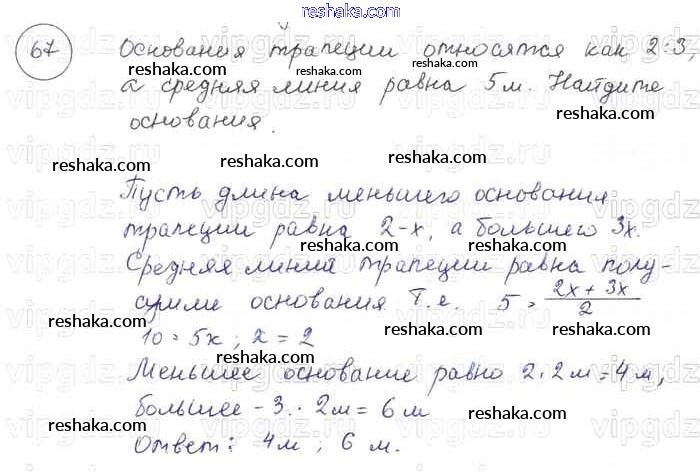 reshaka.com
67 Основания трапеции относятся как 2:3,
reshaka.com reshaka.com
а средняя линия равна 5м. Найдите
reshaka.com
основания.
reshaka.com reshaka.com reshaka.com
Пусть длина меньшего основания
reshaka.com
трапеции равна 2-x, а большего 3x.
reshaka.com reshaka.com
Средняя линий трапеции равна полу-
reshaka.com
сумме основания т.е. 5 = 2x + 3x / 2
reshaka.com reshaka.com
10 = 5x ; x = 2
reshaka.com reshaka.com
Меньшее основание равно 2·2м = 4м,
reshaka.com
большее - 3 · 2м = 6м
reshaka.com reshaka.com
Ответ: 4м ; 6 м.
reshaka.com